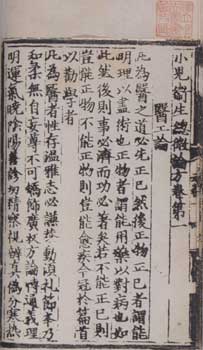 小兒衛生總微論方卷第一
醫工論
凡為醫之道必先正己然後正物正己者謂能
明理以盡術也正物者謂能用藥以對病也如
此然後事必濟而功必著矣若不能正己則
豈能正物不能正物則豈能愈疾今冠於篇首
以勸學者
凡為醫者性存温雅志必謙恭動須礼節舉乃
和柔無自妄尊不可矯飾廣收方論博通義理
明運氣曉陰陽善診切精察視辨真偽分寒熱